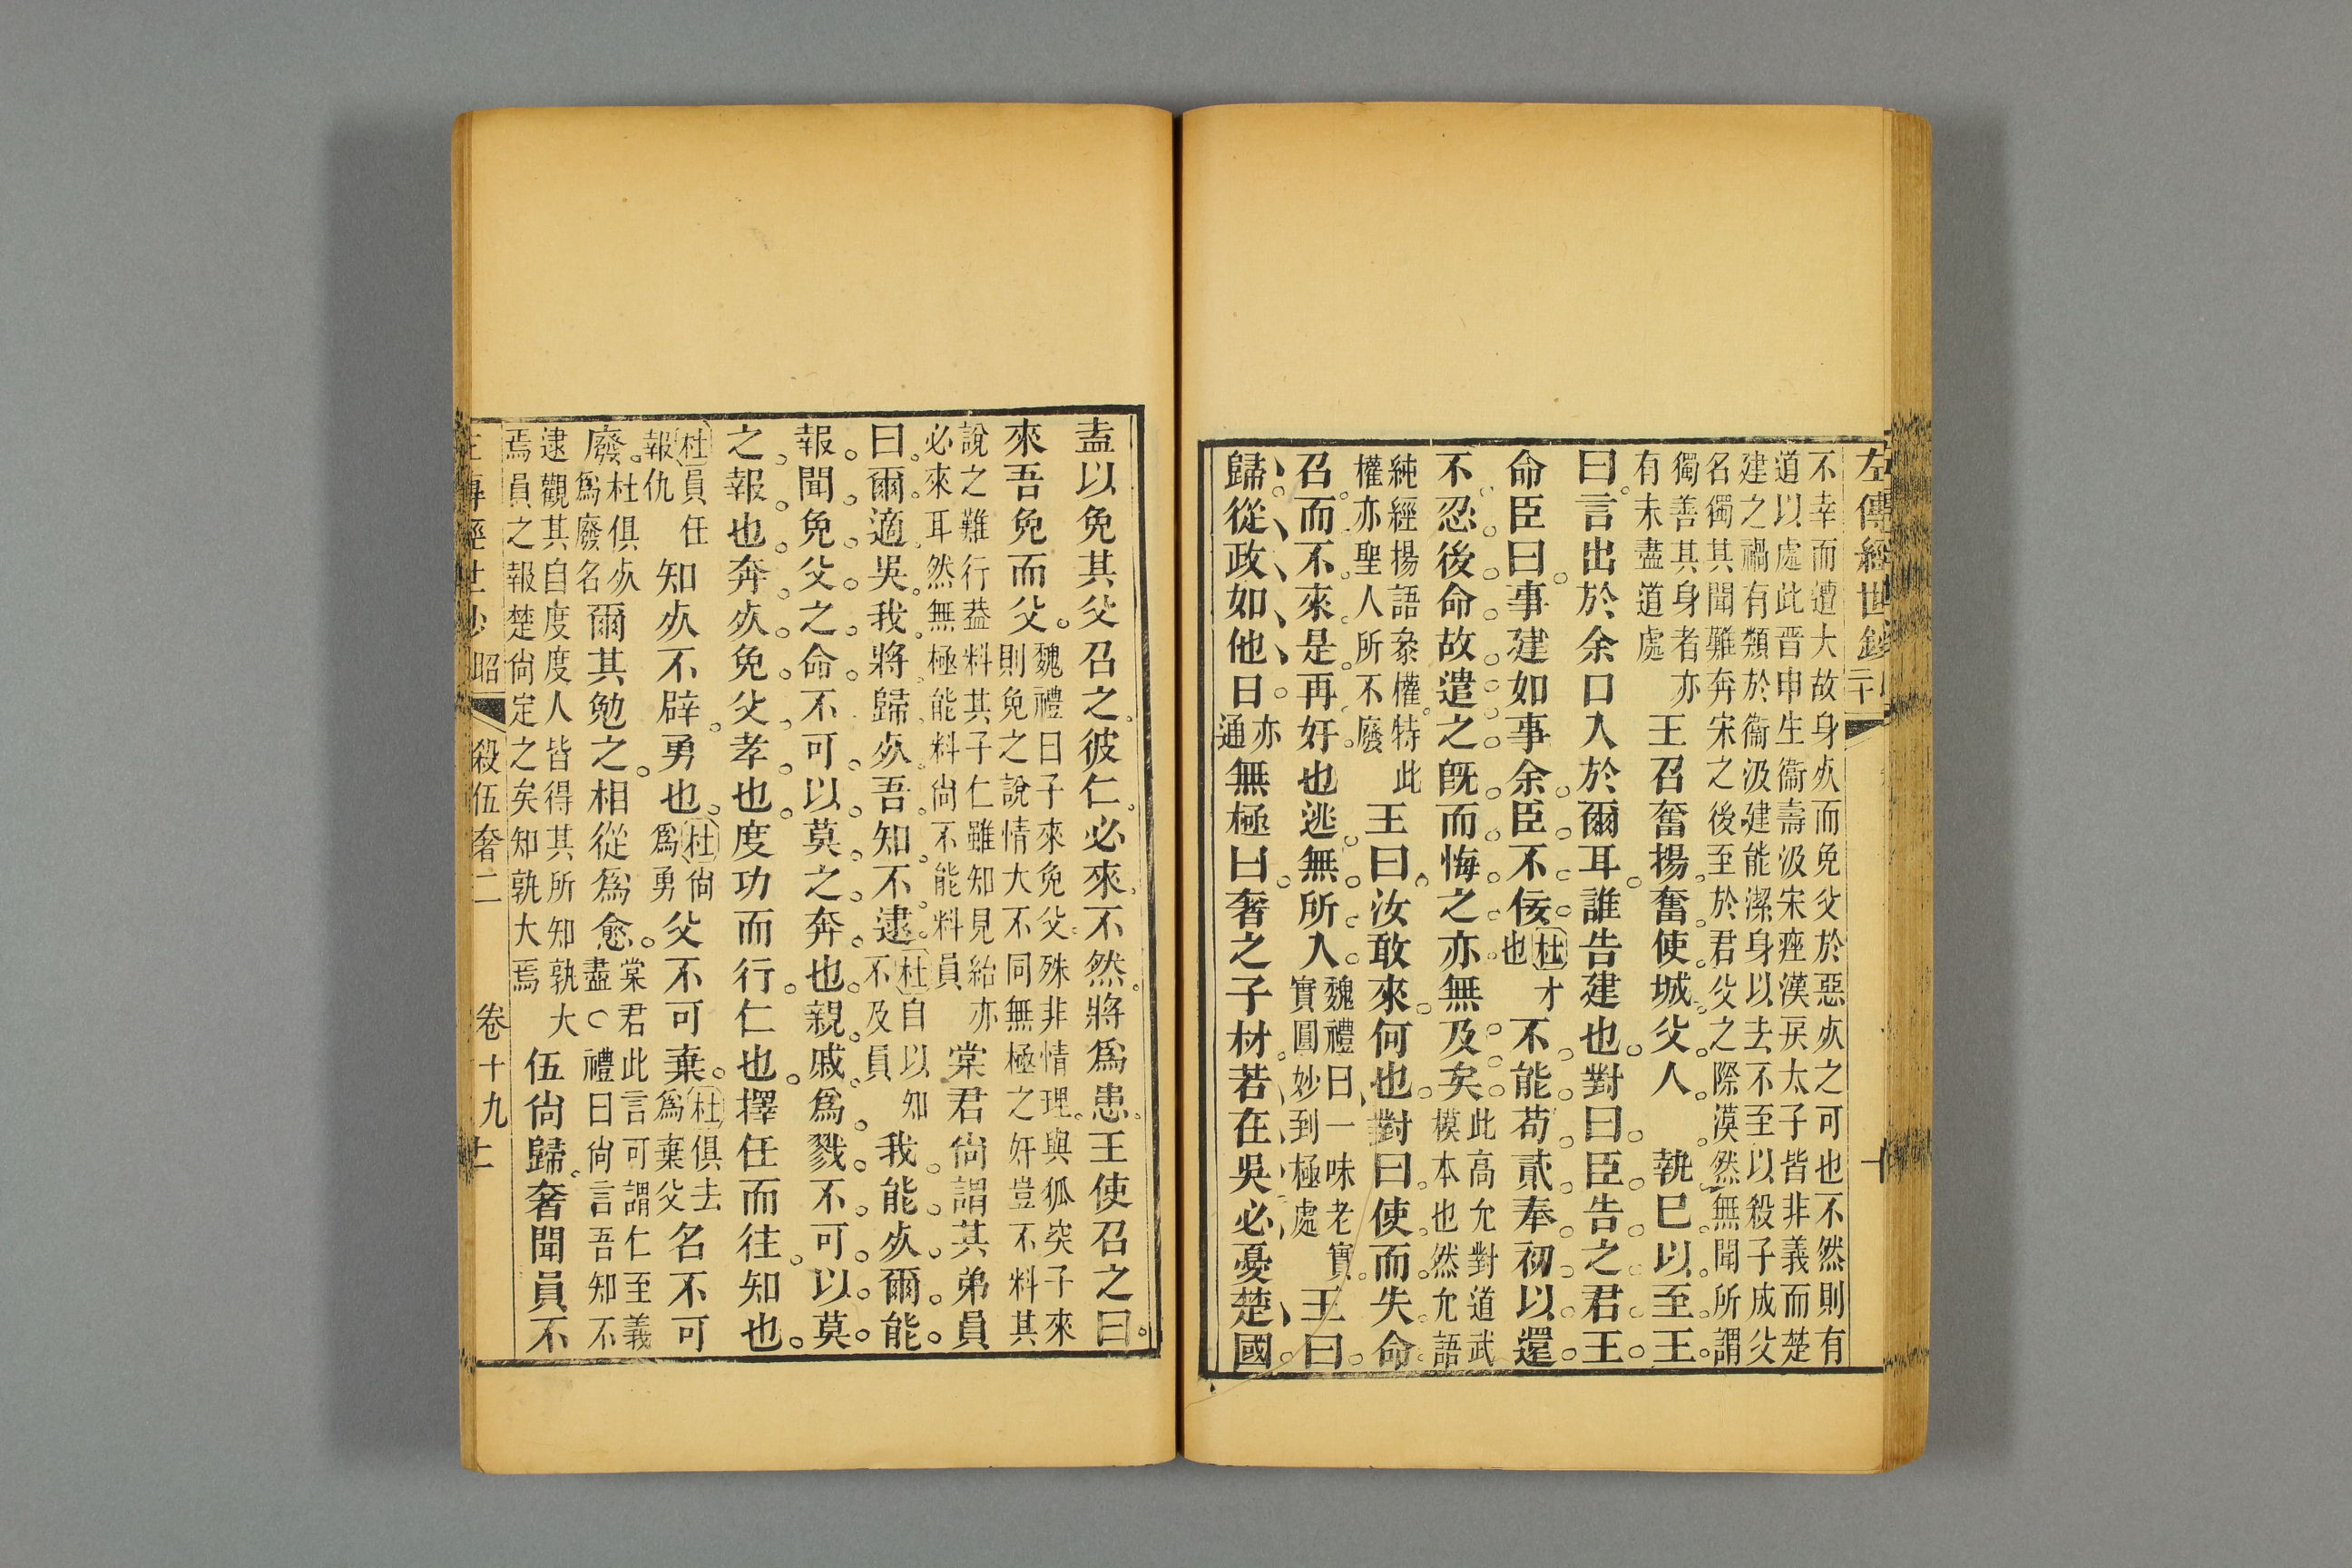 左傳經世鈔
不幸而遭大故身死而免父於惡死之可也不然則有
道以處此晋申生衞壽汲宋痤漢戾太子皆非義而楚
建之禍有類於衞汲建能潔身以去不至以殺子成父
名獨其聞難奔宋之後至於君父之際漠然無聞所謂
獨善其身者亦
有未盡道處
王召奮揚奮使城父人執已以至王
曰言出於余口入於爾耳誰告建也對曰臣告之君王
命臣曰事建如事余臣不佞杜才也不能苟貳奉初以還
不忍後命故遣之旣而悔之亦無及矣
此高允對道武
模本也然允語
純經揚語㕘權特此
權亦聖人所不廢
王曰汝敢來何也對曰使而失命
召而不來是再奸也逃無所入
魏禮曰一味老實
實圓妙到極處
王曰
歸從政如他日亦通無極曰奢之子材若在吳必憂楚國
盍以免其父召之彼仁必來不然將爲患王使召之曰
來吾免而父
魏禮曰子來免父殊非情理與狐突子來
則免之說情大不同無極之奸豈不料其
說之難行葢料其子仁雖知見紿亦
必來耳然無極能料尙不能料員
棠君尙謂其弟員
曰爾適吳我將歸死吾知不逮
杜自以知
不及員
我能死爾能
報聞免父之命不可以莫之奔也親戚爲戮不可以莫
之報也奔死免父孝也度功而行仁也擇任而往知也
杜員任
報仇
知死不辟勇也
杜尙
爲勇
父不可棄
杜俱去
爲棄父
名不可
廢
杜俱死
爲廢名
爾其勉之相從爲愈
棠君此言可謂仁至義
盡○禮曰尙言吾知不
逮觀其自度度人皆得其所知孰大
焉員之報楚尙定之矣知孰大焉
伍尙歸奢聞員不
昭
殺伍奢二
卷十九